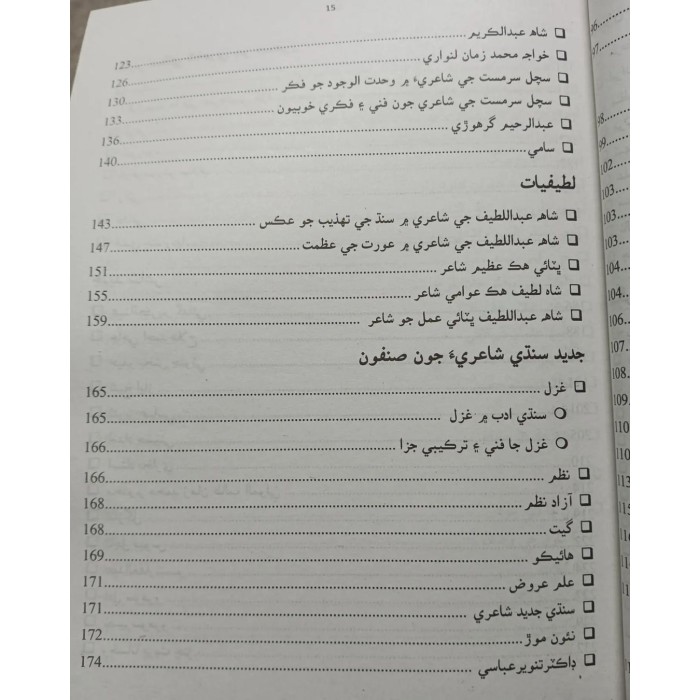 15
❑ شاھ عبدالڪريم
❑ خواجہ محمد زمان لنواري 123
❑ سچل سرمست جي شاعريءَ ۾ وحدت الوجود جو فڪر 126
❑ سچل سرمست جي شاعري جون فني ۽ فڪري خوبيون 130
❑ عبدالرحيم گرهوڙي 133
❑ سامي 136
140
لطيفيات
❑ شاھ عبداللطيف جي شاعري ۾ سنڌ جي تهذيب جو عڪس 143
❑ شاھ عبداللطيف جي شاعري ۾ عورت جي عظمت 147
❑ ڀٽائي هڪ عظيم شاعر 151
❑ شاه لطيف هڪ عوامي شاعر 155
❑ شاھ عبداللطيف ڀٽائي عمل جو شاعر 159
جديد سنڌي شاعريءَ جون صنفون
❑ غزل 165
❍ سنڌي ادب ۾ غزل 165
❍ غزل جا فني ۽ ترڪيبي جزا 166
❑ نظم 166
❑ آزاد نظم 168
❑ گيت 168
❑ هائيڪو 169
❑ علم عروض 171
❑ سنڌي جديد شاعري 171
❑ نئون موڙ 172
❑ ڊاڪٽر تنوير عباسي 174